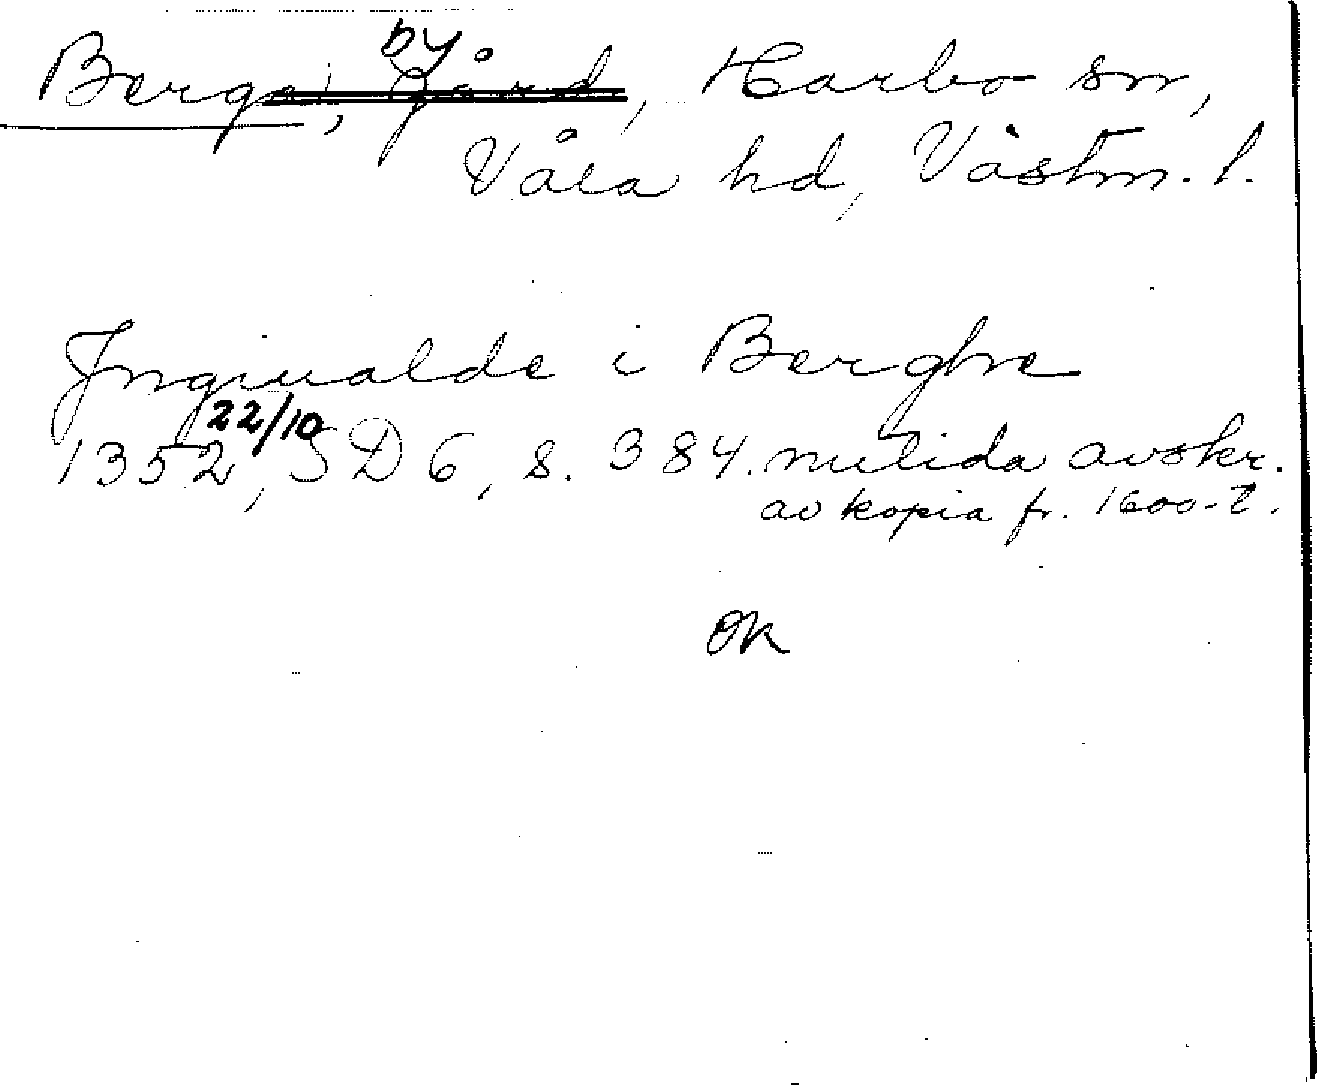 by.
Berga, gård, Harbo sn,
Våla hd, Västm. l.
Jngiualde i Berghe
22/10
1352, SD 6, s. 384. nutida avskr.
av kopia fr. 1600-t.
OK